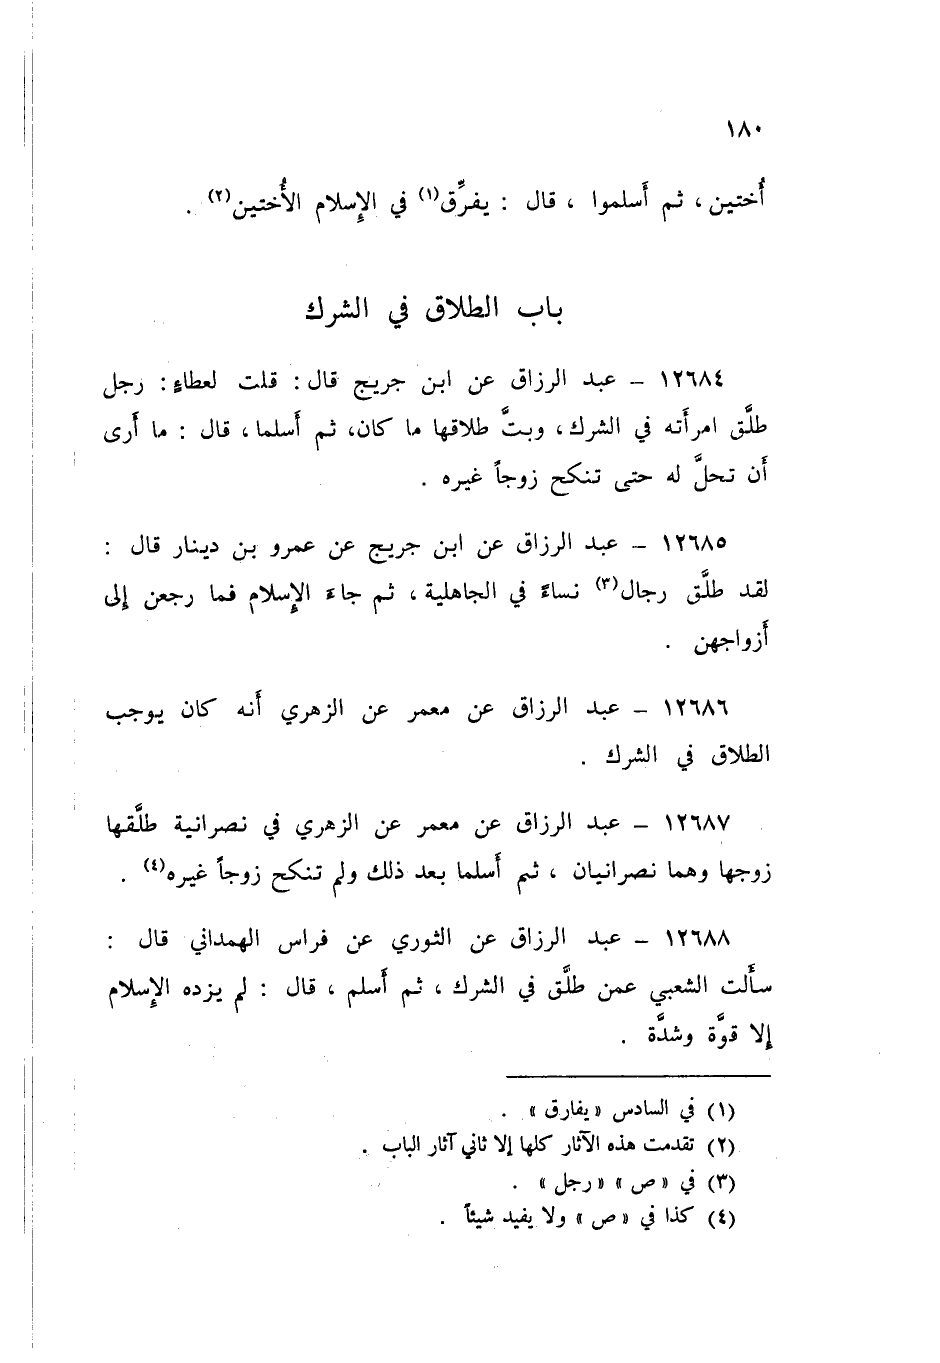 ١٨٠
أُختين ، ثم أَسلموا ، قال : يفرِّق(١) في الإِسلام الأُختين(٢) .
باب الطلاق في الشرك
١٢٦٨٤ – عبد الرزاق عن ابن جريج قال : قلت لعطاءٍ : رجل
طلَّق امرأَته في الشرك ، وبتَّ طلاقها ما كان، ثم أَسلما ، قال : ما أَرى
أَن تحلَّ له حتى تنكح زوجاً غيره .
١٢٦٨٥ – عبد الرزاق عن ابن جريج عن عمرو بن دينار قال :
لقد طلَّق رجال(٣) نساءً في الجاهلية ، ثم جاءَ الإِسلام فما رجعن إِلى
أَزواجهن .
١٢٦٨٦ – عبد الرزاق عن معمر عن الزهري أَنه كان يوجب
الطلاق في الشرك .
١٢٦٨٧ – عبد الرزاق عن معمر عن الزهري في نصرانية طلَّقها
زوجها وهما نصرانيان ، ثم أَسلما بعد ذلك ولم تنكح زوجاً غيره(٤) .
١٢٦٨٨ – عبد الرزاق عن الثوري عن فراس الهمداني قال :
سأَلت الشعبي عمن طلَّق في الشرك ، ثم أَسلم ، قال : لم يزده الإِسلام
إِلا قوَّة وشدَّة .
(١) في السادس « يفارق » .
(٢) تقدمت هذه الآثار كلها إلا ثاني آثار الباب .
(٣) في « ص » « رجل » .
(٤) كذا في « ص » ولا يفيد شيئاً .